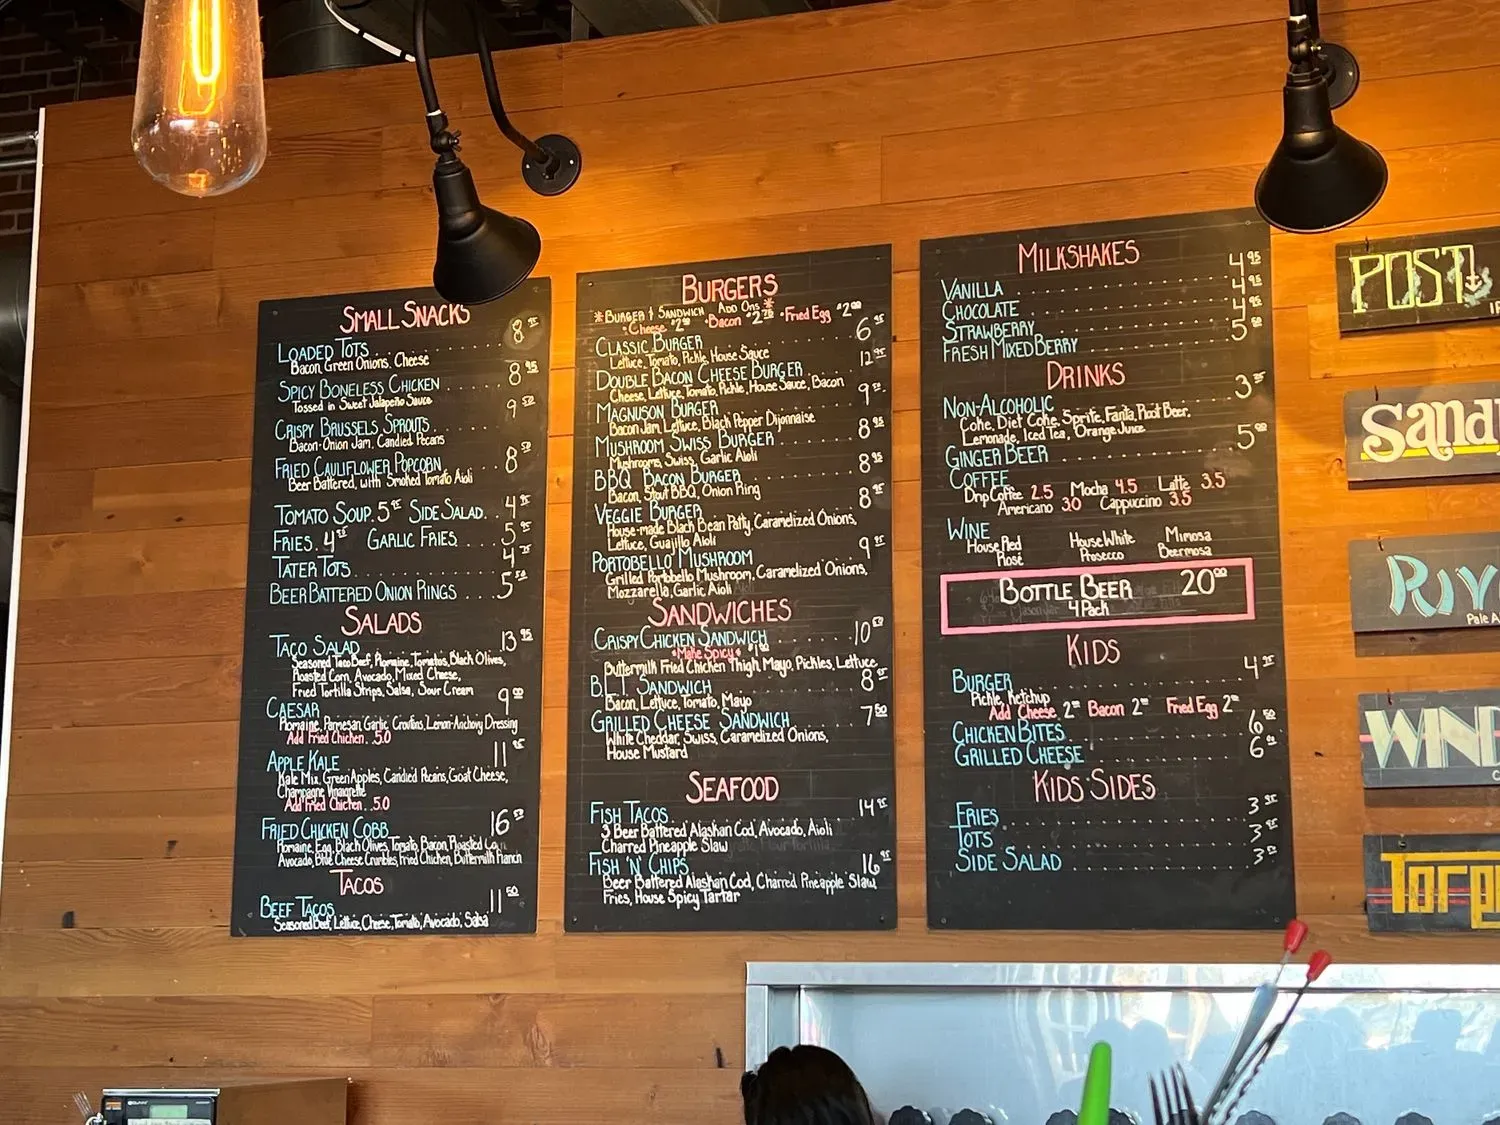 SMALL SNACKS
LOADED TOTS 8
Bacon, Green Onions, Cheese
SPICY BONELESS CHICKEN 8 95
Tossed in Sweet Jalapeño Sauce
CRISPY BRUSSELS SPROUTS 9 50
Bacon-Onion Jam, Candied Pecans
FRIED CAULIFLOWER POPCORN 8 50
Beer Battered, with Smoked Tomato Aioli
TOMATO SOUP 5 95 SIDE SALAD 4 95
FRIES 4 GARLIC FRIES 5 95
TATER TOTS 4
BEER BATTERED ONION RINGS 5 50
SALADS
TACO SALAD 13 95
Seasoned Taco Beef, Romaine, Tomatos, Black Olives,
Roasted Corn, Avocado, Mixed Cheese,
Fried Tortilla Strips, Salsa, Sour Cream
CAESAR 9
Romaine, Parmesan, Garlic Croutons, Lemon-Anchovy Dressing
Add Fried Chicken..5.0
APPLE KALE 11
Kale Mix, Green Apples, Candied Pecans, Goat Cheese,
Champagne Vinaigrette
Add Fried Chicken..5.0
FRIED CHICKEN COBB 16
Romaine, Egg, Black Olives, Tomato, Bacon, Roasted Corn,
Avocado, Blue Cheese Crumbles, Fried Chicken, Buttermilk Ranch
TACOS
BEEF TACOS 11 50
Seasoned Beef, Lettuce, Cheese, Tomato, Avocado, Salsa
BURGERS
*BURGER & SANDWICH ADD ONS*
Cheese $2 Bacon $2 Fried Egg $2
CLASSIC BURGER 6
Lettuce, Tomato, Pickle, House Sauce
DOUBLE BACON CHEESE BURGER 12 95
Cheese, Lettuce, Tomato, Pickle, House Sauce, Bacon
MAGNUSON BURGER 9
Bacon Jam, Lettuce, Black Pepper Dijonnaise
MUSHROOM SWISS BURGER 8 95
Mushrooms, Swiss, Garlic Aioli
BBQ BACON BURGER 8 95
Bacon, Stout BBQ, Onion Ring
VEGGIE BURGER 8
House-made Black Bean Patty, Caramelized Onions,
Lettuce, Guajillo Aioli
PORTOBELLO MUSHROOM 9
Grilled Portobello Mushroom, Caramelized Onions,
Mozzarella, Garlic Aioli
SANDWICHES
CRISPY CHICKEN SANDWICH 10 50
*Make Spicy*
Buttermilk Fried Chicken Thigh, Mayo, Pickles, Lettuce
B.L.T. SANDWICH 8
Bacon, Lettuce, Tomato, Mayo
GRILLED CHEESE SANDWICH 7 50
White Cheddar, Swiss, Caramelized Onions,
House Mustard
SEAFOOD
FISH TACOS 14 95
3 Beer Battered Alaskan Cod, Avocado, Aioli
Charred Pineapple Slaw
FISH 'N' CHIPS 16 95
Beer Battered Alaskan Cod, Charred Pineapple Slaw
Fries, House Spicy Tartar
MILKSHAKES
VANILLA 4 95
CHOCOLATE 4 95
STRAWBERRY 4 95
FRESH MIXED BERRY 5 50
DRINKS
NON-ALCOHOLIC 3
Coke, Diet Coke, Sprite, Fanta, Root Beer,
Lemonade, Iced Tea, Orange Juice
GINGER BEER 5 00
COFFEE
Drip Coffee 2.5 Mocha 4.5 Latte 3.5
Americano 3.0 Cappuccino 3.5
WINE
House Red House White Mimosa
Rosé Prosecco Beermosa
BOTTLE BEER 20 00
4 Pack
KIDS
BURGER 4
Pickle, Ketchup
Add Cheese 2 Bacon 2 Fried Egg 2
CHICKEN BITES 6 50
GRILLED CHEESE 6
KIDS SIDES
FRIES 3
TOTS 3
SIDE SALAD 3
POST